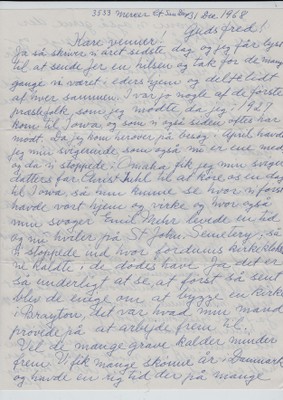 3533 Mercer St San Diego 31 Dec 1968
Guds fred!
Kære venner!
Ja så skriver vi året sidste dag og jeg får lyst
til at sende jer en hilsen og tak for de mange
gange vi været i eders hjem og del[t] tidt
af mer sammen. I var jo nogle af de første
præstefolk som jeg mødte da jeg i 1927
kom til Iowa og som vi også siden ofte har
mødt. Da jeg kom herover på besøg i April havde
jeg min svigerinde som også nu er ene med
og da vi stoppede i Omaha fik jeg min sviger
datters far Chris Juhl til at køre os en dag
til Iowa, så min kunne se hvor vi først
havde vort hjem og virke og hvor også
min svoger Emil Mehr levede en tid
og nu hviler på St John, Semetery; så
vi stoppede ind hvor fordums kirke
vi kaldte i de dødes have. Ja det er
så underligt at se, at først så sent
blev de enige om at bygge en kirke
i Brayton, det var hvad min mand
prøvede på at arbejde frem til.
Vel de mange grave kalder minder
frem. Vi fik mange skønne år i Danmark
og havde en rig tid der på mange